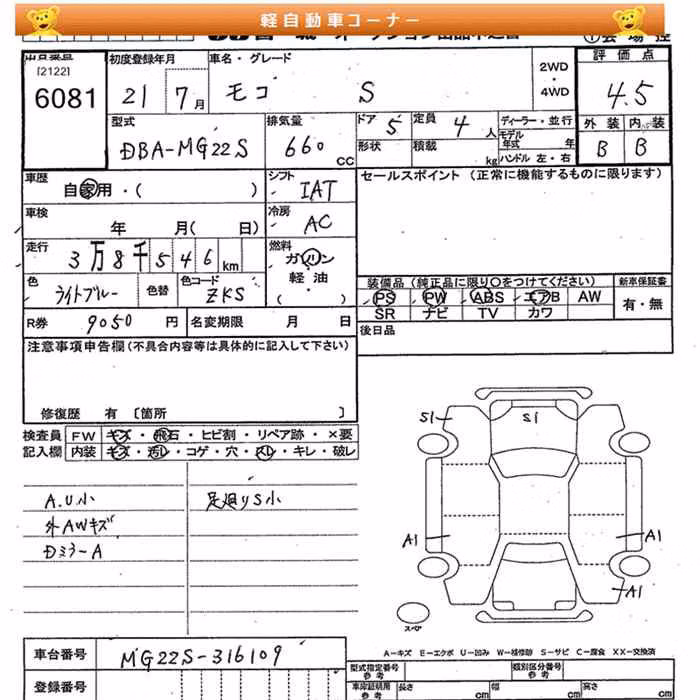 軽自動車コーナー
[2122]
6081
初度登録年月
21 7月
車名・グレード
モコ S
2WD
・
4WD
評価点
4.5
外装 内装
B B
型式
DBA-MG22S
排気量
660 CC
ドア 5
定員 4人
形状
積載 kg
ディーラー・並行
モデル年式 年
ハンドル 左・右
車歴
自家用・( )
シフト
IAT
セールスポイント (正常に機能するものに限ります)
車検
年 月( 日)
冷房
AC
走行
3万8千546km
燃料
ガソリン
軽・油
( )
色
ライトブルー
色替
色コード
ZKS
装備品(純正品に限り〇をつけてください)
新車保証書
PS PW ABS エアB AW
SR ナビ TV カワ
有・無
R券 9050円
名変期限 月 日
後日品
注意事項申告欄(不具合内容等は具体的に記入して下さい)
修復歴 有 [箇所 ]
検査員 FW キズ・飛石・ヒビ割・リペア跡・×要
記入欄 内装 キズ・汚レ・コゲ・穴・スレ・キレ・破レ
A.U小
外AWキズ
Dミラ-A
足廻りS小
S1
S1
A1
A1
A1
スペア
A-キズ E-エクボ U-凹み W-補修跡 S-サビ C-腐食 XX-交換済
車台番号 MG22S-316109
登録番号
型式指定番号
参考
類別区分番号
参考
車庫証明用
参考
長さ cm
幅 cm
高さ cm